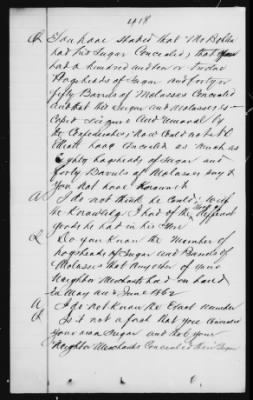 1418
Q You have stated that Mr Bolton
had his Sugar Concealed, that
had a hundred and ten or twelve
Hogsheads of Sugar and forty or
fifty Barrels of Molasses Concealed
and that his Sugar and Molasses es-
caped Seizure and Removal by
the Confederates; Now Could not
Elliott have Concealed as much as
Eighty hogsheads of Sugar and
forty Barrels of Molasses and
you not have Known it
A I do not think he Could; with
the Knowledge I had of the different
goods he had in his Store
Q Do you Know the Number of
hogsheads of Sugar and Barrels of
Molasses that any other of your
Neighbor Merchants had on hand
in May and June 1862
A I do not Know the Exact number
Q Is it not a fact that you Concealed
your own Sugar and that your
Neighbor Merchants Concealed their Sugar